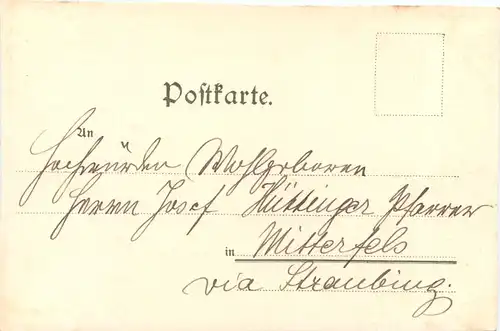 Postkarte.
An
Hochwürden Wohlgeboren
Herrn Josef Hüttinger Pfarrer
in Mitterfels
via Straubing.